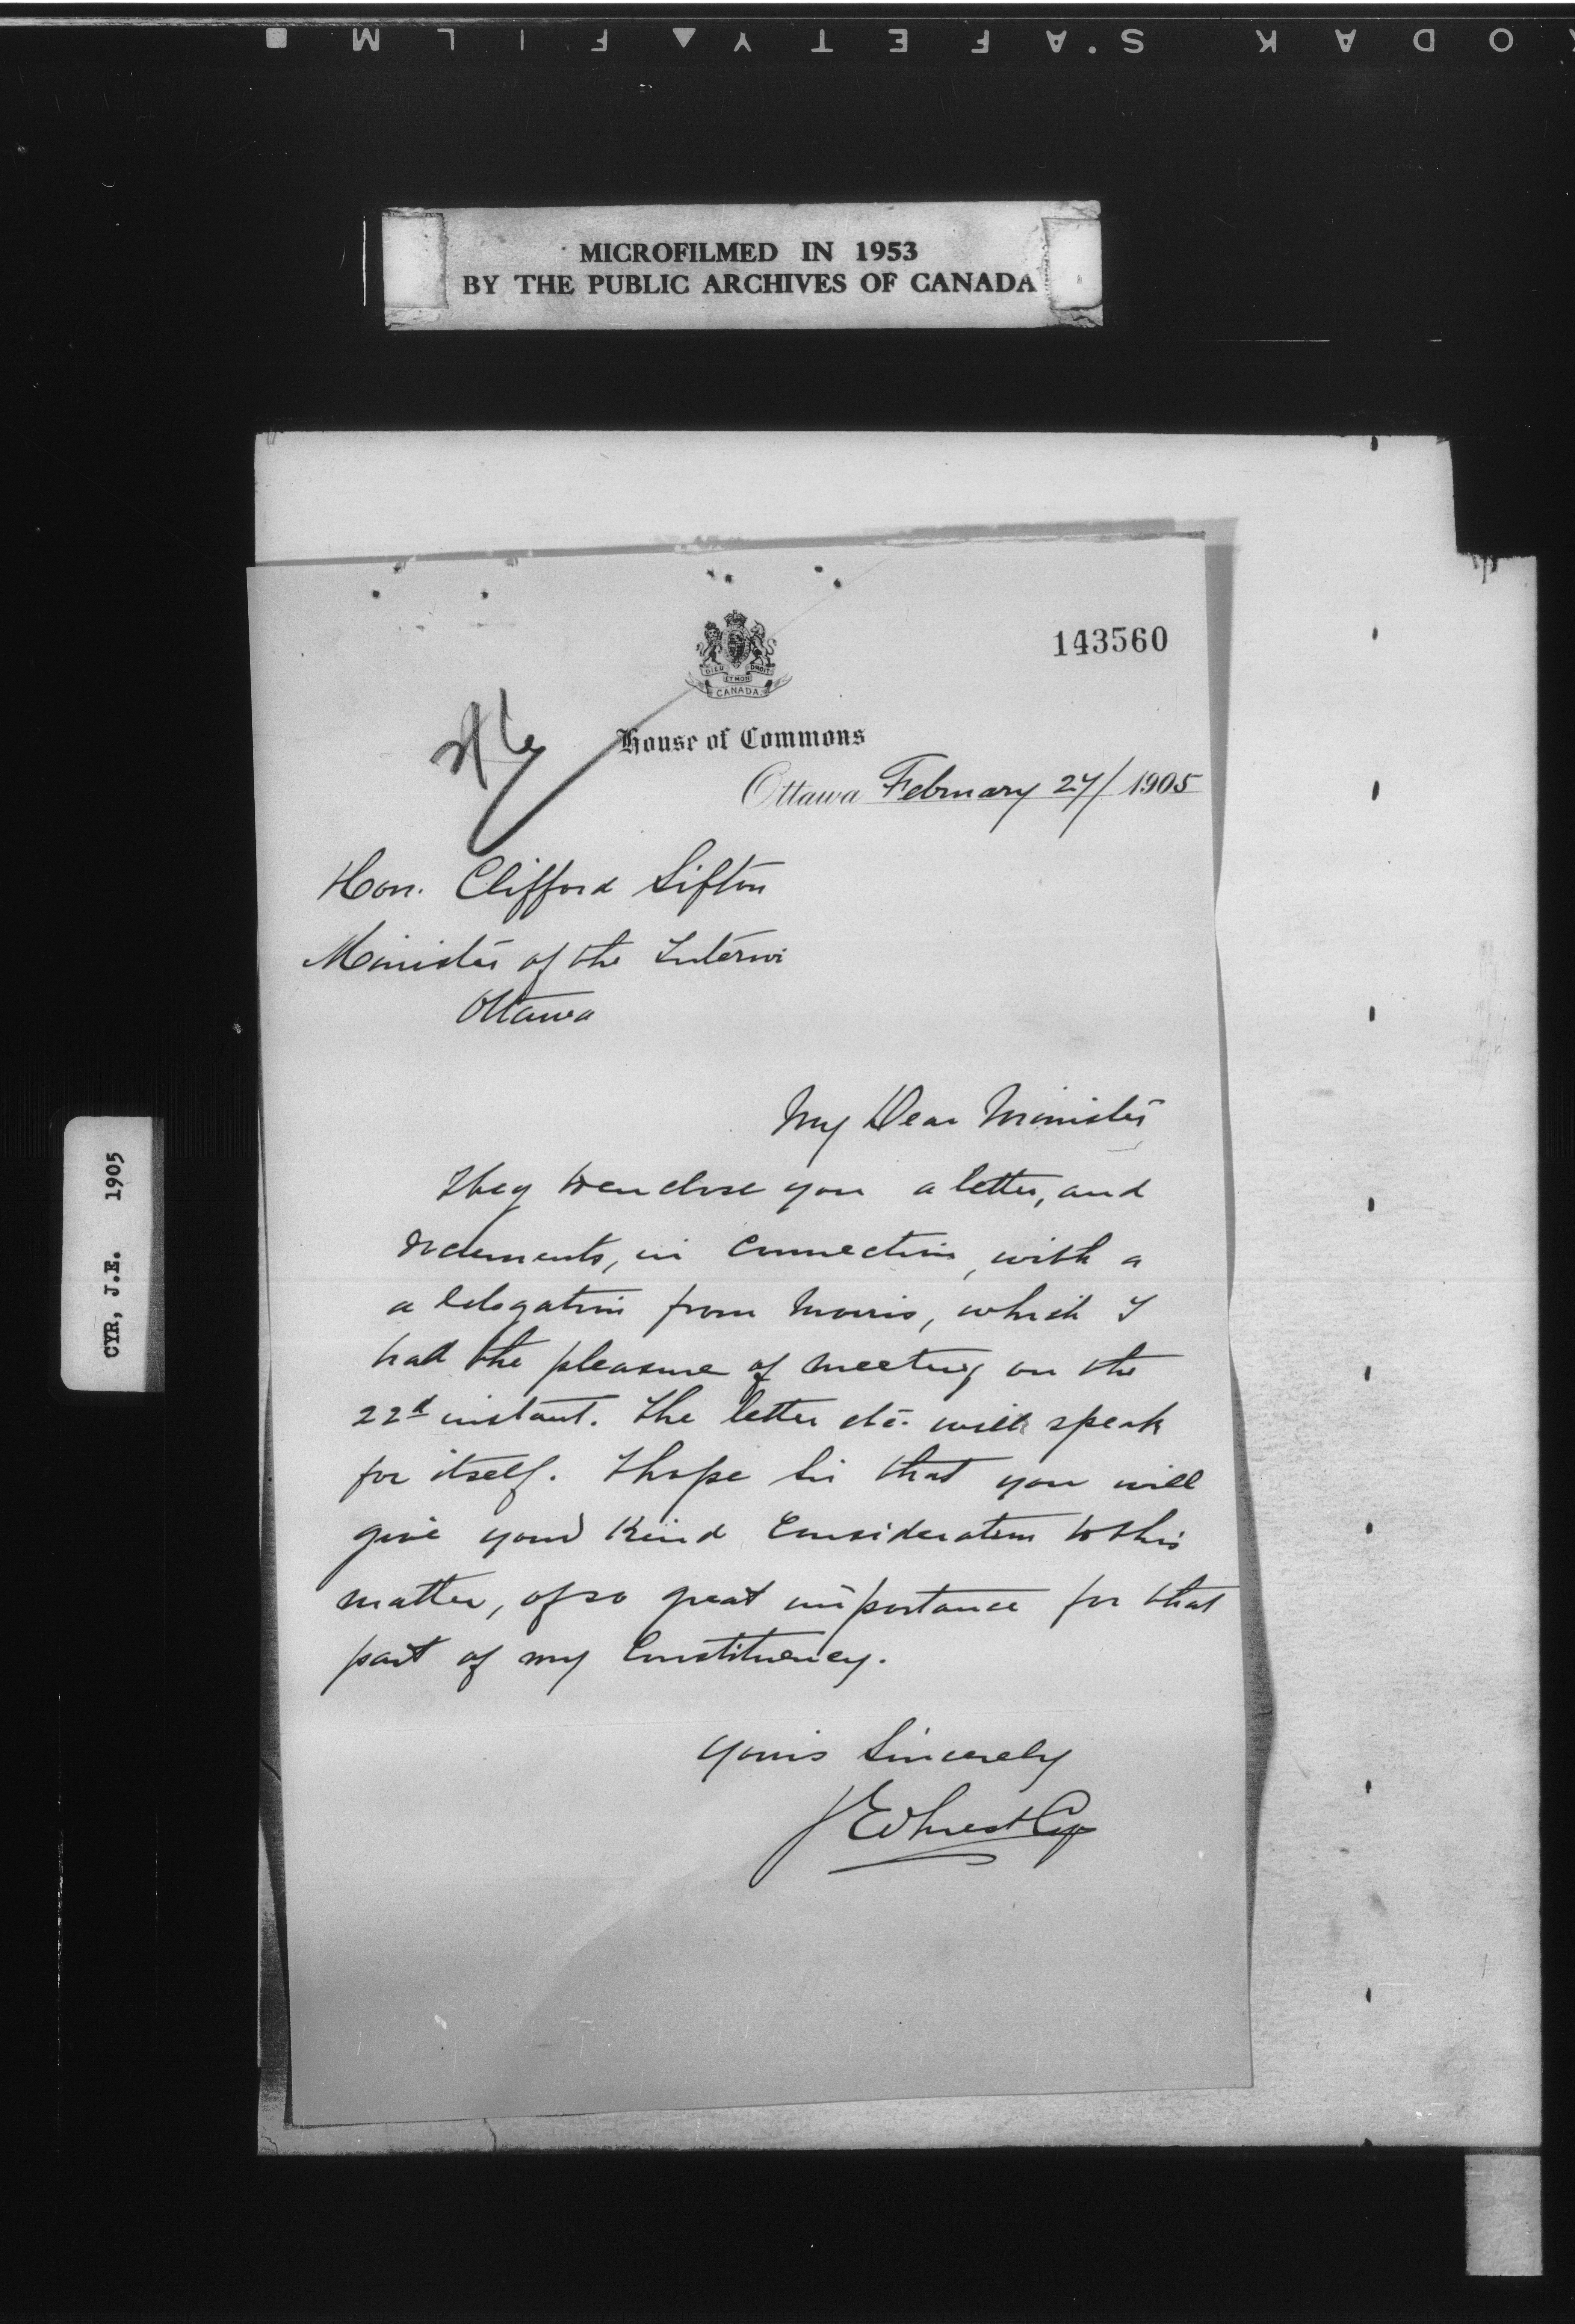 KODAK S.AFETY▲FILM■
MICROFILMED IN 1953
BY THE PUBLIC ARCHIVES OF CANADA
143560
DIEU ET MON DROIT
CANADA
House of Commons
Ottawa February 27/1905
Hon. Clifford Sifton
Minister of the Interior
Ottawa
My Dear Minister
I beg to enclose you a letter, and
documents, in connection, with a
a delegation from Morris, which I
had the pleasure of meeting on the
22d instant. The letter etc. will speak
for itself. I hope Sir that you will
give your kind Consideration to this
matter, of so great importance for that
part of my Constituency.
Yours Sincerely
J Ernest Cyr
CYR, J.E. 1905